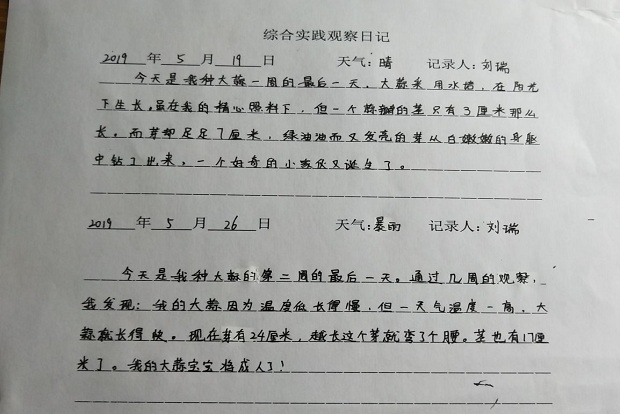 综合实践观察日记
2019 年 5 月 19 日 天气:晴 记录人:刘瑞
今天是我种大蒜一周的最后一天、大蒜采用水培,在阳光
下生长,虽在我的精心照料下,但一个蒜瓣的茎只有3厘米那么
长。而芽却足足7厘米,绿油油而又发亮的芽从白嫩嫩的身躯
中钻了出来,一个好奇的小家伙又诞生了。
2019 年 5 月 26 日 天气:暴雨 记录人:刘瑞
今天是我种大蒜的第二周的最后一天。通过几周的观察,
我发现:我的大蒜因为温度低长得慢,但一天气温度一高、大
蒜就长得快。现在芽有24厘米,越长这个芽就弯了个腰。茎也有17厘
米了。我的大蒜宝宝将成人了!